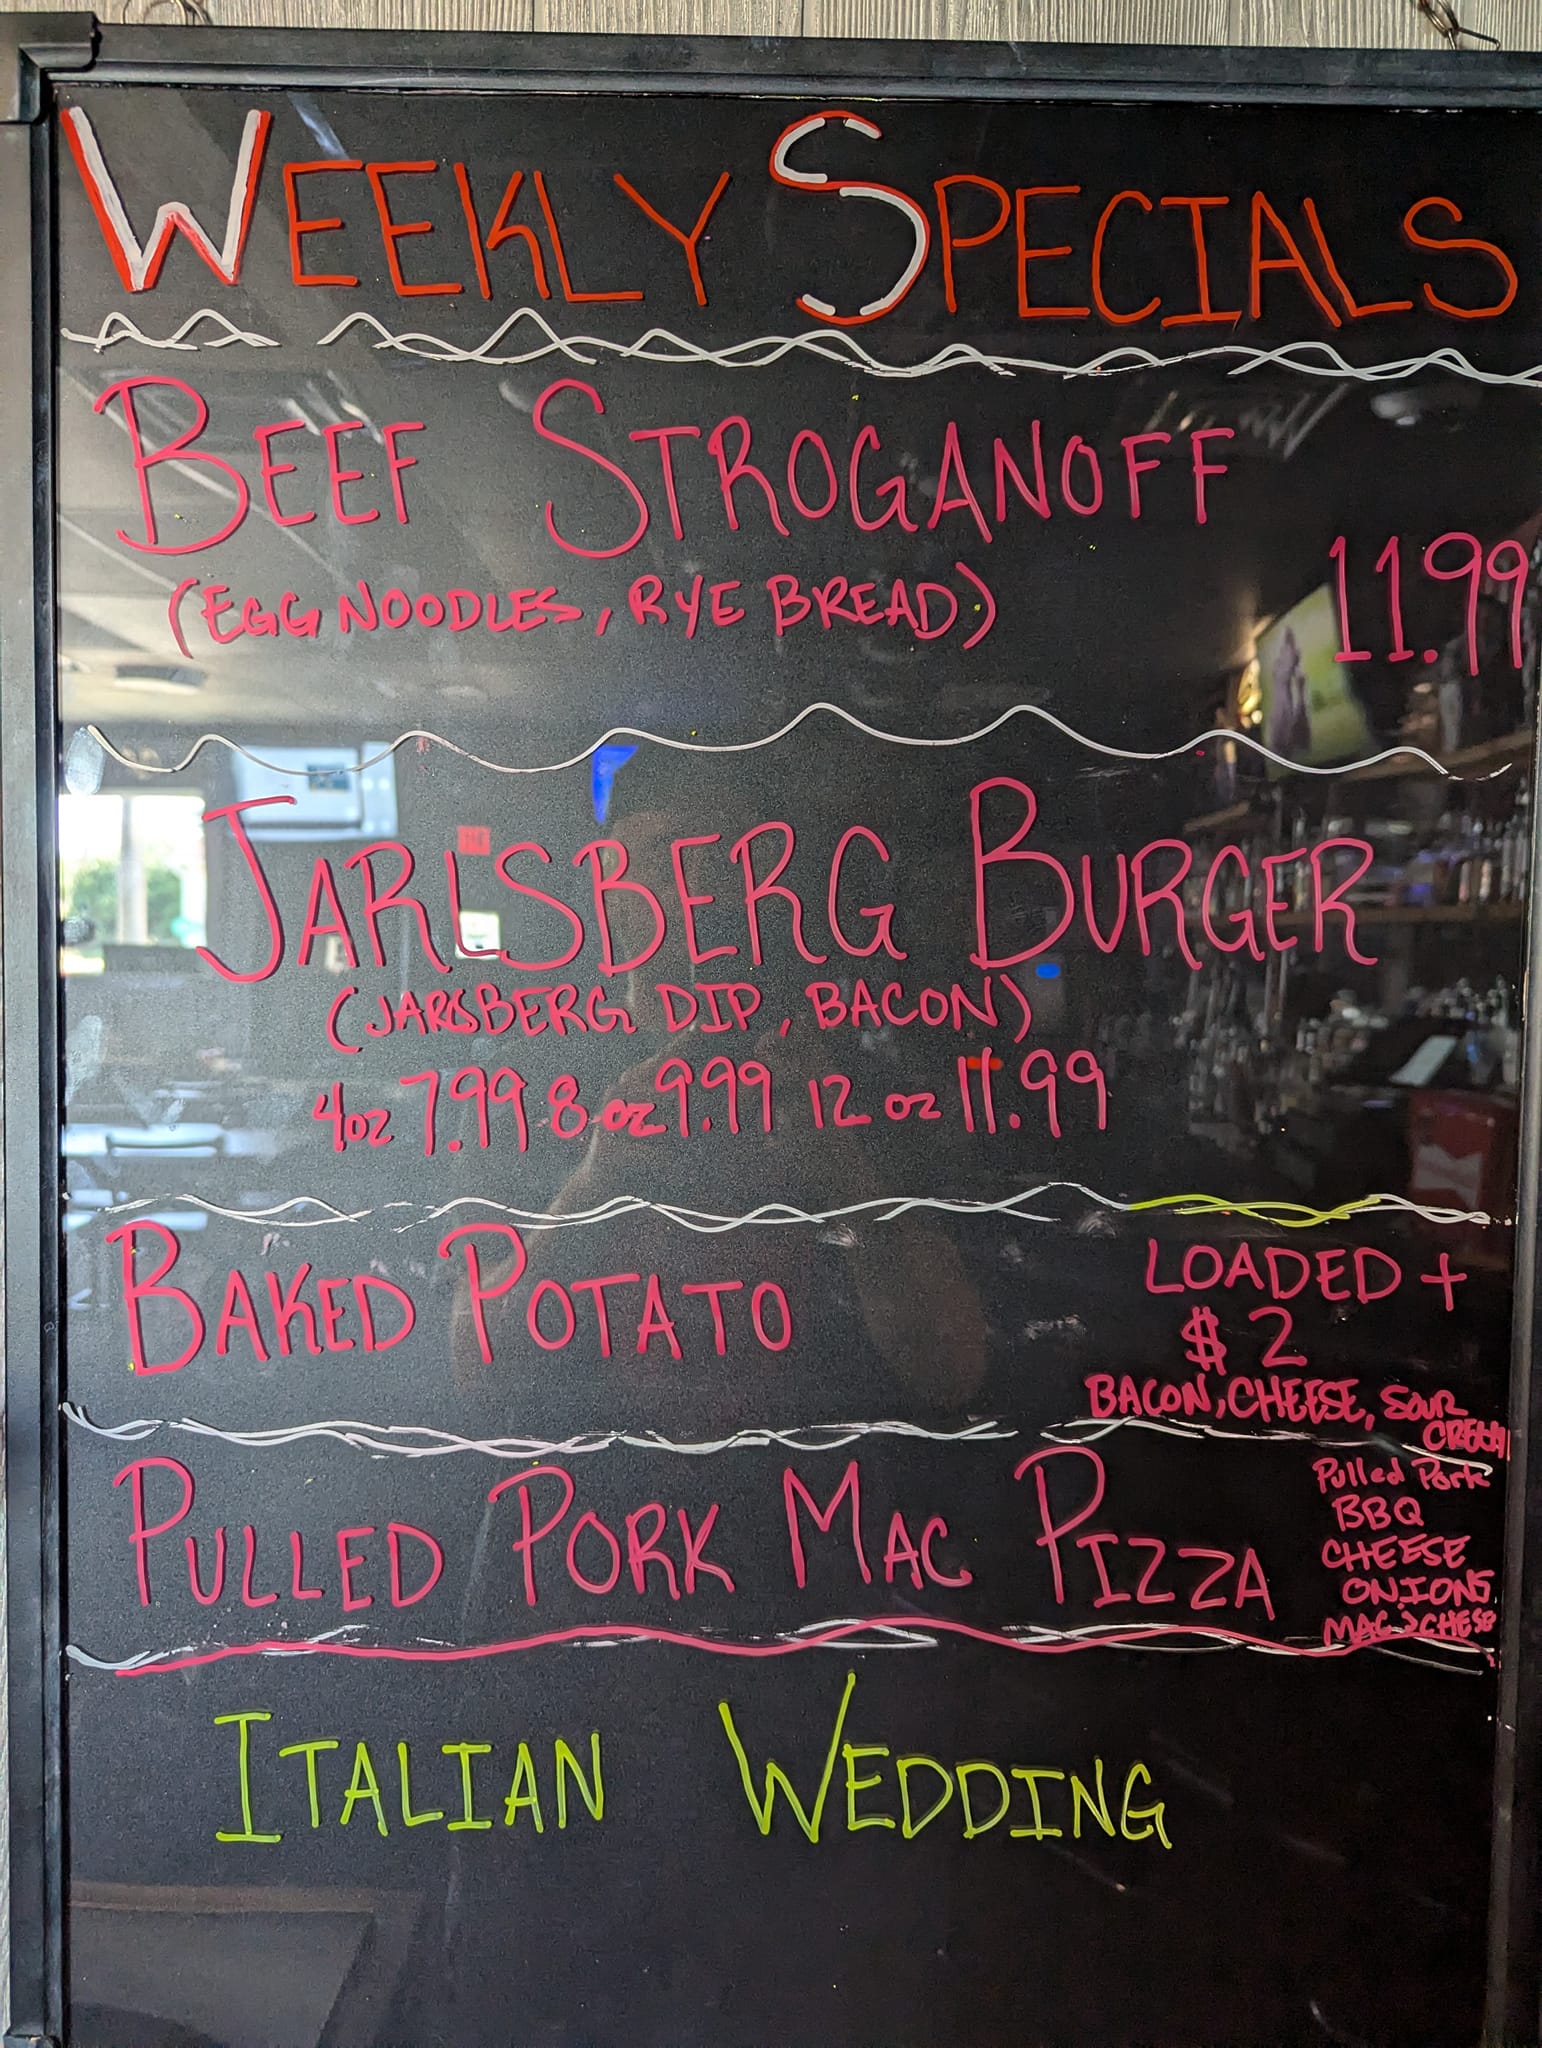 WEEKLY SPECIALS
BEEF STROGANOFF
(EGG NOODLES, RYE BREAD)
11.99
JARLSBERG BURGER
(JARLSBERG DIP, BACON)
4oz 7.99 8 oz 9.99 12 oz 11.99
BAKED POTATO
LOADED +
$2
BACON, CHEESE, SOUR
CREAM
PULLED PORK MAC PIZZA
Pulled Pork
BBQ
CHEESE
ONIONS
MAC & CHEESE
ITALIAN WEDDING